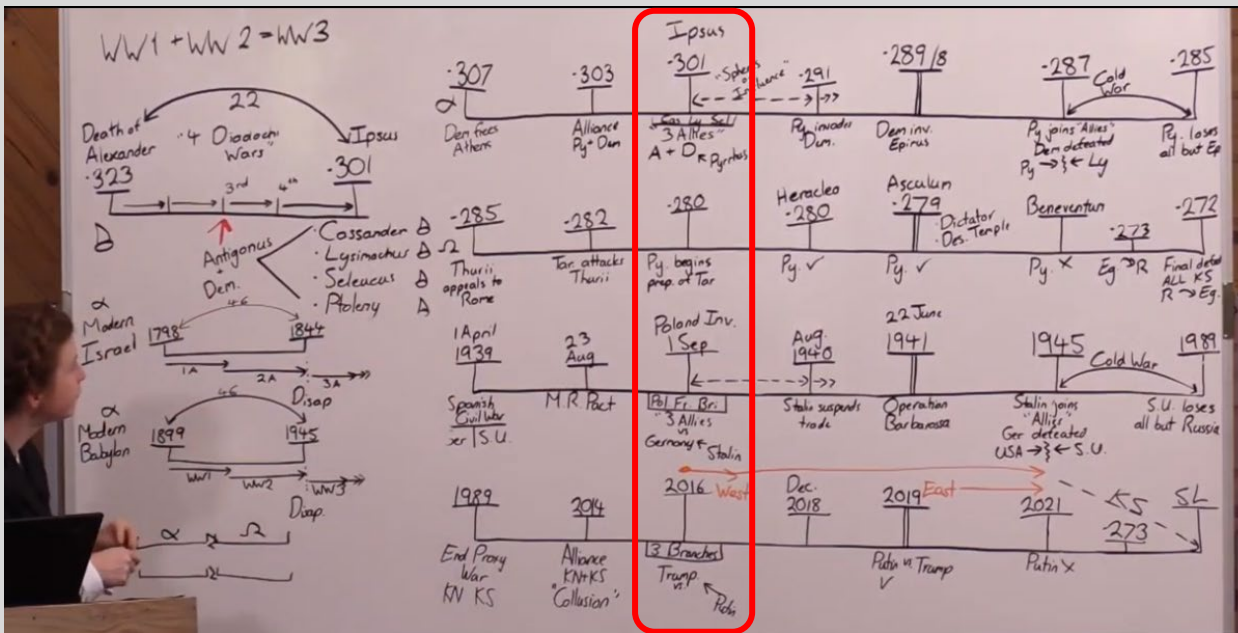 WW1 + WW2 = WW3
22
Death of Alexander
"4 Diadochi Wars"
Ipsus
-323
-301
3rd
4th
Antigonus
+
Dem.
· Cassander
· Lysimachus
· Seleucus
· Ptolemy
α
Modern
Israel
46
1798
1844
1A
2A
3A
Disap
α
Modern
Babylon
46
1899
1945
WW1
WW2
WW3
Disap.
α
Ω
α
-307
Dem frees
Athens
-303
Alliance
Py + Dem
Ipsus
-301
"Spheres of Influence"
Cas Ly Sel
"3 Allies"
A + D
Pyrrhus
-291
Py invades
Dem.
-289/8
Dem inv.
Epirus
-287
Cold
War
Py joins "Allies"
Dem defeated
Py → ← Ly
-285
Py. loses
all but Ep
Ω
-285
Thurii
appeals to
Rome
-282
Tar. attacks
Thurii
-280
Py. begins
prep. at Tar
Heraclea
-280
Py. ✓
Asculum
-279
· Dictator
· Des. Temple
Py. ✓
Beneventum
Py. X
-273
Eg → R
-272
Final defeat
ALL KS
R → Eg.
1 April
1939
Spanish
Civil War
S.U.
23
Aug
M.R. Pact
Poland Inv.
1 Sep
Pol. Fr. Br.
"3 Allies
vs
Germany
Stalin
Aug.
1940
Stalin suspends
trade
22 June
1941
Operation
Barbarossa
1945
Cold War
Stalin joins
"Allies"
Ger defeated
USA → ← S.U.
1989
S.U. loses
all but Russia
1989
End Proxy
War
KN KS
2014
Alliance
KN+KS
"Collusion"
2016
West
3 Branches
Trump
vs.
Putin
Dec.
2018
2019
East
Putin vs. Trump
✓
2021
Putin X
KS
-273
SL